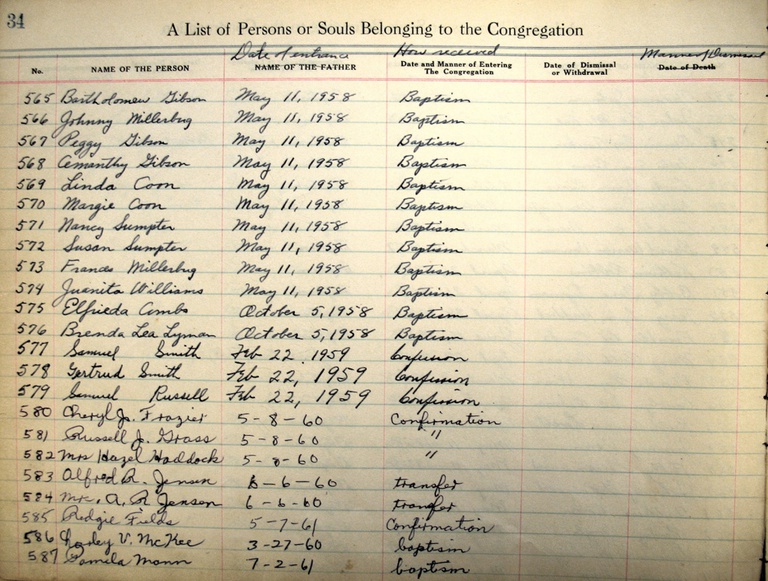 34
A List of Persons or Souls Belonging to the Congregation
Date of entrance How received Manner of Dismissal
No. NAME OF THE PERSON NAME OF THE FATHER Date and Manner of Entering The Congregation Date of Dismissal or Withdrawal Date of Death
565 Bartholomew Gibson May 11, 1958 Baptism
566 Johnny Millerbrg May 11, 1958 Baptism
567 Peggy Gibson May 11, 1958 Baptism
568 Amanthy Gibson May 11, 1958 Baptism
569 Linda Coon May 11, 1958 Baptism
570 Margie Coon May 11, 1958 Baptism
571 Nancy Sumpter May 11, 1958 Baptism
572 Susan Sumpter May 11, 1958 Baptism
573 Frances Millerbrg May 11, 1958 Baptism
574 Juanita Williams May 11, 1958 Baptism
575 Elfrieda Combs October 5, 1958 Baptism
576 Brenda Lea Lyman October 5, 1958 Baptism
577 Samuel Smith Feb 22, 1959 Confession
578 Gertrud Smith Feb 22, 1959 Confession
579 Samuel Russell Feb 22, 1959 Confession
580 Cheryl Jo Frazier 5-8-60 Confirmation
581 Russell J. Grass 5-8-60 "
582 Mrs Hazel Haddock 5-8-60 "
583 Alfred R. Jensen 6-6-60 transfer
584 Mrs. A. R. Jensen 6-6-60 transfer
585 Redgie Fields 5-7-61 Confirmation
586 Charley V. McKee 3-27-60 baptism
587 Pamela Mann 7-2-61 baptism